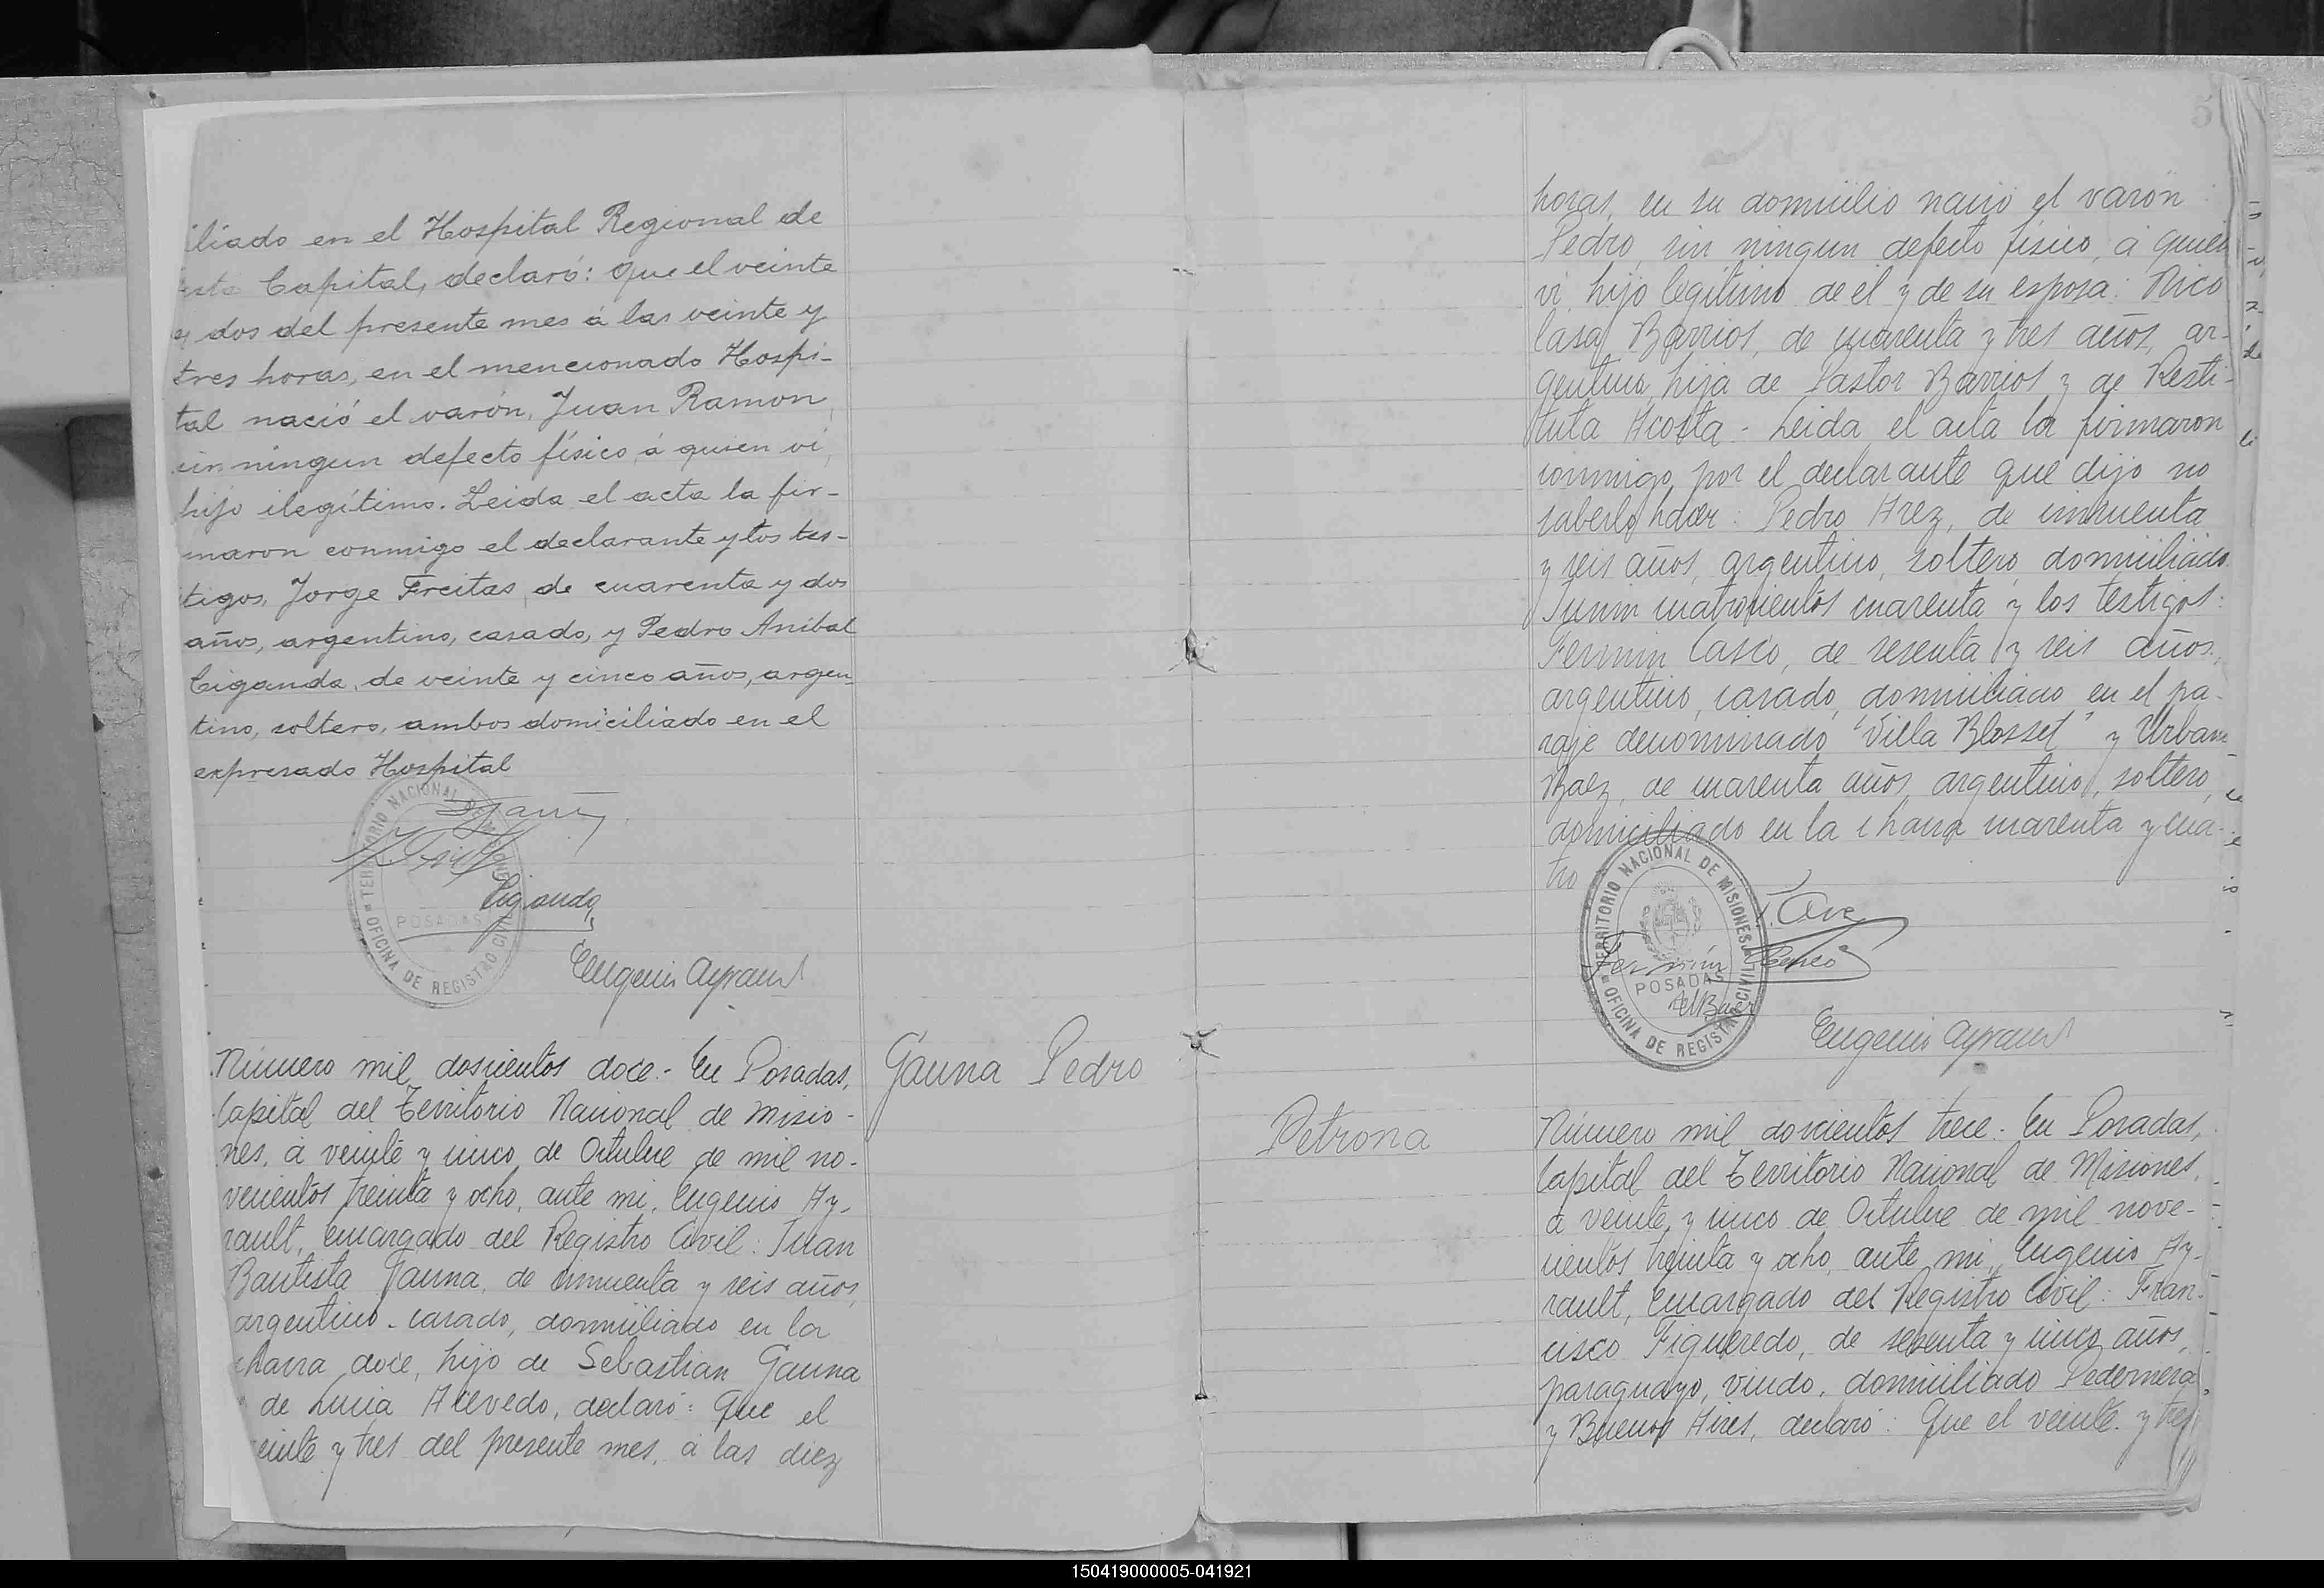 iliado en el Hospital Regional de
esta Capital, declaró: Que el veinte
y dos del presente mes á las veinte y
tres horas, en el mencionado Hospi-
tal nació el varón, Juan Ramon,
sin ningun defecto físico, á quien vi,
hijo ilegítimo. Leida el acta la fir-
maron conmigo el declarante y los tes-
tigos, Jorge Freitas, de cuarenta y dos
años, argentino, casado, y Pedro Anibal
Ciganda, de veinte y cinco años, argen-
tino, soltero, ambos domiciliado en el
expresado Hospital
TERRITORIO NACIONAL DE
OFICINA DE REGISTRO CIVIL
POSADAS
Ciganda
Eugenio Ayrault
Número mil doscientos doce.- En Posadas,
Capital del Territorio Nacional de Misio-
nes, á veinte y cinco de Octubre de mil no-
vecientos treinta y ocho, ante mi, Eugenio Ay-
rault, encargado del Registro Civil: Juan
Bautista Gauna, de cincuenta y seis años,
argentino - casado, domiciliado en la
chacra doce, hijo de Sebastian Gauna
de Lucia Acevedo, declaró: Que el
veinte y tres del presente mes, á las diez
Gauna Pedro
5
horas, en su domicilio nació el varón
Pedro, sin ningun defecto físico, á quien
vi, hijo legítimo de el y de su esposa: Nico
lasa Barrios, de cuarenta y tres años, ar-
gentina, hija de Pastor Barrios y de Resti-
tuta Acosta.- Leida el acta la firmaron
conmigo, por el declarante que dijo no
saberlo hacer: Pedro Arez, de cincuenta
y seis años, argentino, soltero, domiciliado
Junin cuatrocientos cuarenta y los testigos:
Fermin Casco, de sesenta y seis años,
argentino, casado, domiciliado en el pa-
raje denominado "Villa Blosset" y Urbano
Baez, de cuarenta años, argentino, soltero,
domiciliado en la chacra cuarenta y cua-
tro
TERRITORIO NACIONAL DE MISIONES
OFICINA DE REGISTRO CIVIL
POSADAS
Fermin Casco
Baez
Eugenio Ayrault
Petrona
Número mil doscientos trece.- En Posadas,
Capital del Territorio Nacional de Misiones,
á veinte y cinco de Octubre de mil nove-
cientos treinta y ocho, ante mi, Eugenio Ay-
rault, encargado del Registro Civil: Fran-
cisco Figueredo, de sesenta y cinco años,
paraguayo, viudo, domiciliado Pedernera
y Buenos Aires, declaró: Que el veinte y tres
150419000005-041921